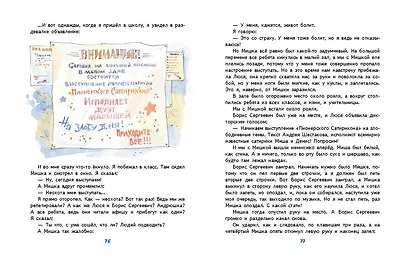 ...И вот однажды, когда я пришёл в школу, я увидел в раз-
девалке объявление:
ВНИМАНИЕ!
СЕГОДНЯ НА БОЛЬШОЙ ПЕРЕМЕНЕ
В МАЛОМ ЗАЛЕ
СОСТОИТСЯ
ВЫСТУПЛЕНИЕ ЛЕТУЧЕГО ПАТРУЛЯ
"ПИОНЕРСКОГО САТИРИКОНА"
ИСПОЛНЯЕТ
ДУЭТ
МАЛЫШЕЙ
НА ЗЛОБУ ДНЯ!
ПРИХОДИТЕ
ВСЕ!!!
И во мне сразу что-то ёкнуло. Я побежал в класс. Там сидел
Мишка и смотрел в окно. Я сказал:
— Ну, сегодня выступаем!
А Мишка вдруг промямлил:
— Неохота мне выступать...
Я прямо оторопел. Как — неохота? Вот так раз! Ведь мы же
репетировали! А как же Люся и Борис Сергеевич? Андрюшка?
А все ребята, ведь они читали афишу и прибегут как один?
Я сказал:
— Ты что, с ума сошёл, что ли? Людей подводить?
А Мишка так жалобно:
76
— У меня, кажется, живот болит.
Я говорю:
— Это со страху. У меня тоже болит, но я ведь не отказы-
ваюсь!
Но Мишка всё равно был какой-то задумчивый. На большой
перемене все ребята кинулись в малый зал, а мы с Мишкой еле
плелись позади, потому что у меня тоже совершенно пропало
настроение выступать. Но в это время нам навстречу прибежа-
ла Люся, она крепко схватила нас за руки и поволокла за со-
бой, но у меня ноги были мягкие, как у куклы, и заплетались.
Это я, наверно, от Мишки заразился.
В зале было огорожено место около рояля, а вокруг столпи-
лись ребята из всех классов, и няни, и учительницы.
Мы с Мишкой встали около рояля.
Борис Сергеевич был уже на месте, и Люся объявила дик-
торским голосом:
— Начинаем выступление «Пионерского Сатирикона» на зло-
бодневные темы. Текст Андрея Шестакова, исполняют всемирно
известные сатирики Миша и Денис! Попросим!
И мы с Мишкой вышли немножко вперёд. Миша был белый,
как стена. А я ничего, только во рту было сухо и шершаво, как
будто там лежал наждак.
Борис Сергеевич заиграл. Начинать нужно было Мишке, пото-
му что он пел первые две строчки, а я должен был петь вто-
рые две строчки. Вот Борис Сергеевич заиграл, а Мишка
выкинул в сторону левую руку, как его научила Люся, и хотел
было запеть, но опоздал, и, пока он собирался, наступила уже
моя очередь, так выходило по музыке. Но я не стал петь, раз
Мишка опоздал. С какой стати!
Мишка тогда опустил руку на место. А Борис Сергеевич
громко и раздельно начал снова.
Он ударил, как и следовало, по клавишам три раза, а на
четвёртый Мишка опять откинул левую руку и наконец запел:
77